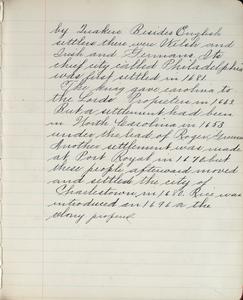 by Quakers Besides English
settlers there were Welsh and
Irish and Germans. Its
chief city called Philadelphia
was first settled in 1681.
The King gave carolina to
the Lords Proprietors in 1663
But a settlement had been
in North Carolina in 1653
under the lead of Roger
Another settlement was made
at Port Royal in 1670 but
these people afterward moved
and settled the city of
Charlestown in 1680. Rice was
introduced in 1696 a the
colony